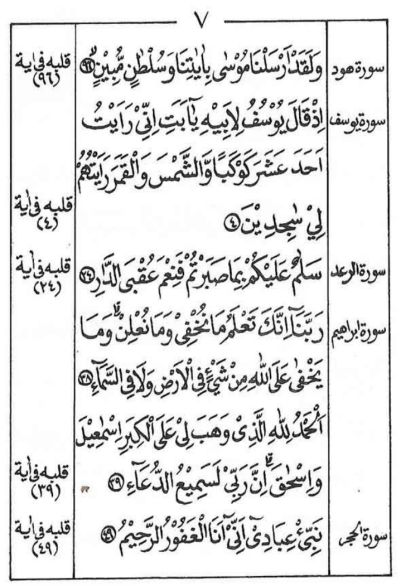 ٧
سورة هود وَلَقَدْ اَرْسَلْنَا مُوْسٰى بِاٰيٰتِنَا وَسُلْطٰنٍ مُّبِيْنٍ ۙ ﴿٩٦﴾ قلبه فى اية (٩٦)
سورة يوسف اِذْ قَالَ يُوْسُفُ لِاَبِيْهِ يٰۤاَبَتِ اِنِّيْ رَاَيْتُ
اَحَدَ عَشَرَ كَوْكَبًا وَّالشَّمْسَ وَالْقَمَرَ رَاَيْتُهُمْ
لِيْ سٰجِدِيْنَ ﴿٤﴾ قلبه فى اية (٤)
سورة الرعد سَلٰمٌ عَلَيْكُمْ بِمَا صَبَرْتُمْ فَنِعْمَ عُقْبَى الدَّارِ ﴿٢٤﴾ قلبه فى اية (٢٤)
سورة ابراهيم رَبَّنَاۤ اِنَّكَ تَعْلَمُ مَا نُخْفِيْ وَمَا نُعْلِنُ ؕ وَمَا
يَخْفٰى عَلَى اللّٰهِ مِنْ شَيْءٍ فِي الْاَرْضِ وَلَا فِي السَّمَآءِ ﴿٣٨﴾
اَلْحَمْدُ لِلّٰهِ الَّذِيْ وَهَبَ لِيْ عَلَى الْكِبَرِ اِسْمٰعِيْلَ
وَاِسْحٰقَ ؕ اِنَّ رَبِّيْ لَسَمِيْعُ الدُّعَآءِ ﴿٣٩﴾ قلبه فى اية (٣٩)
سورة الحجر نَبِّئْ عِبَادِيْۤ اَنِّيْۤ اَنَا الْغَفُوْرُ الرَّحِيْمُ ﴿٤٩﴾ قلبه فى اية (٤٩)